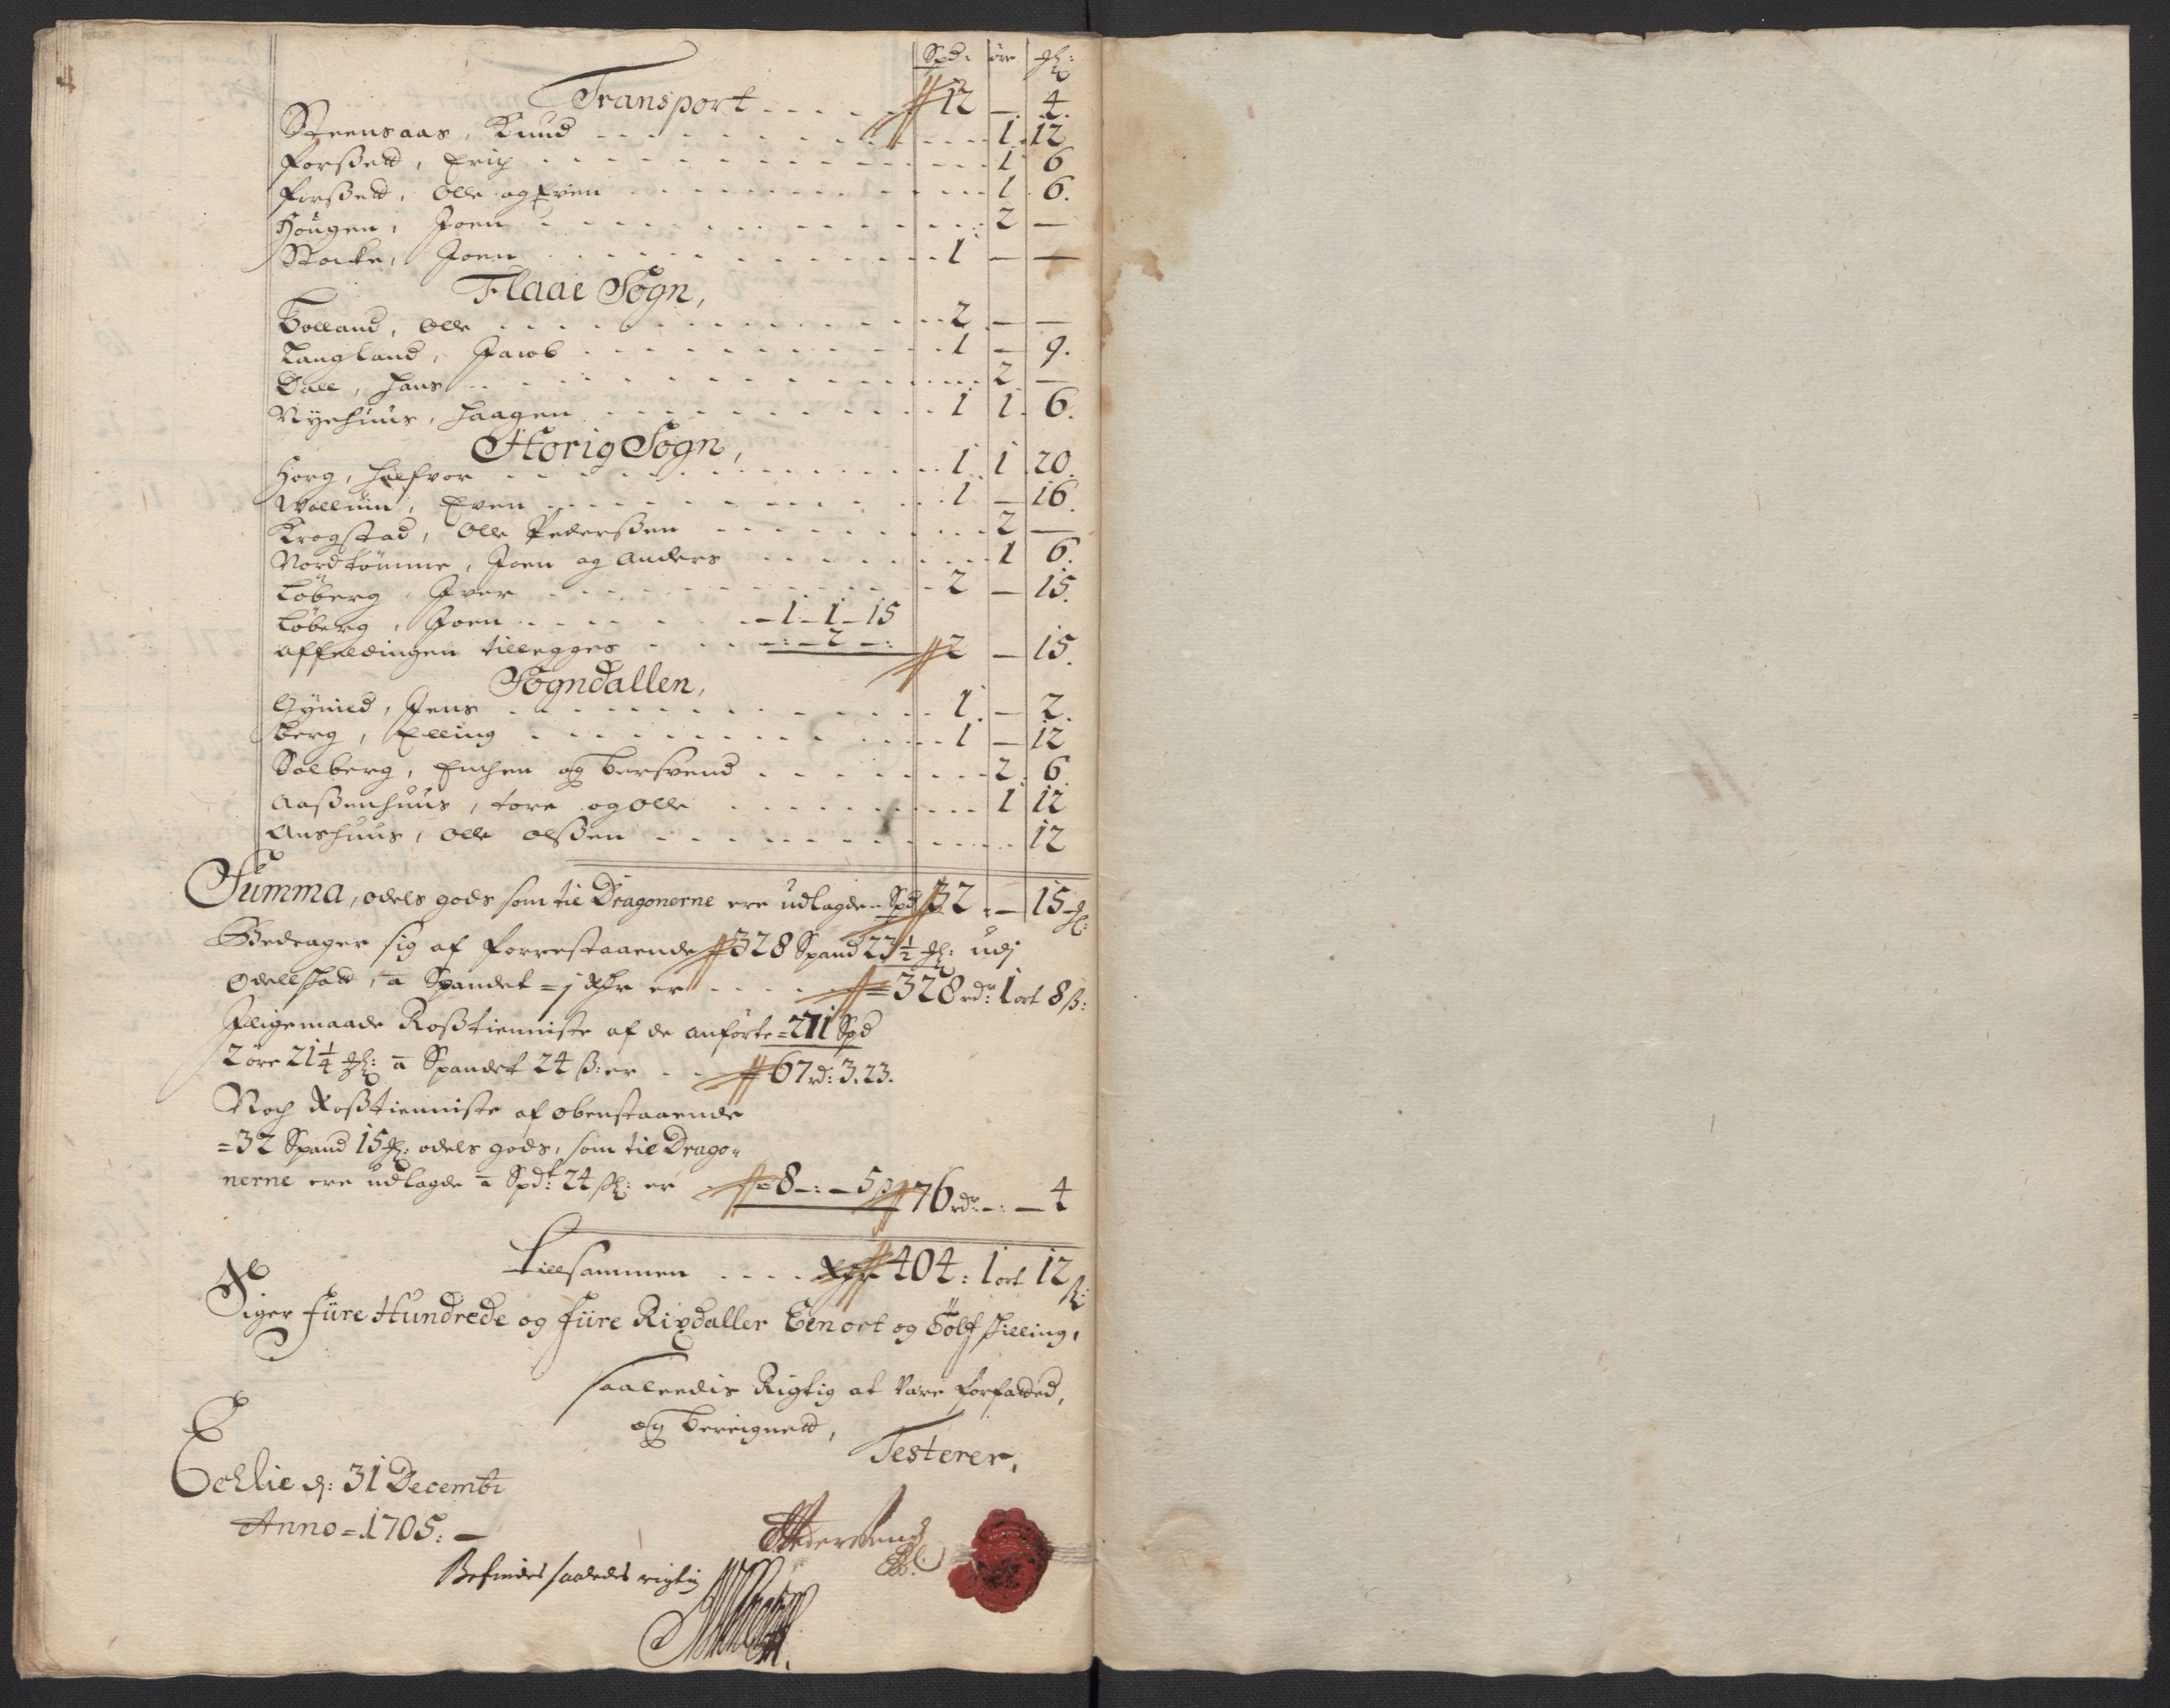 Spd: øre ȝl:
Transport . . . . . 12 — 4.
Steensaas, Knud . . . . . 1. 12
Forsett, Erich . . . . . 1 6
Forsett, Olle og Even . . . . . 1. 6.
Hougen, Joen . . . . . 2 —
Stocke, Joen . . . . . 1 — —
Flaae Sogn,
Volland, Olle . . . . . 2 — —
Langland, Jacob . . . . . 1 — 9.
Dall, Hans . . . . . 2 —
Nyehuus, Haagen . . . . . 1 1. 6.
Horig Sogn,
Horg, Halfvor . . . . . 1. 1 20.
Wollum, Even . . . . . 1 — 16.
Krogstad, Olle Pederssen . . . . . 2 —
Nordtømme, Joen og Anders . . . . . 1 6.
Løberg, Iver . . . . . 2 — 15.
Løberg, Joen . . . . . 1 — 1 — 15
affeldingen tillegges . . . —:—2—: 2 — 15.
Sogndallen,
Gynield, Jens . . . . . 1. — 2.
Berg, Elling . . . . . 1 — 12
Solberg, Enchen og Bersvend . . . . . 2. 6.
Aassenhuus, Tore og Olle . . . . . 1 12
Anshuus, Olle Olssen . . . . . 12
Summa, odels gods som til Dragonerne ere udlagde - Spd 32 . — 15 ȝl:
Bedrager sig af Forrestaaende 328 Spand 23½ ȝl: udj
Odellskatt, a Spandet = 1 Rdr er . . . . = 328 rdr: 1 ort 8 ß:
Iligemaade Rosstienniste af de anførte = 271 Spd
2 øre 21¼ ȝl: a Spandet 24 ß: er . . = 67 rd: 3. 23.
Noch Rosstienniste af obenstaaende
= 32 Spand 15 ȝl: odels gods, som til Drago-
nerne ere udlagde a Spd: 24 ßl: er = 8 —: — 5 76 rdr —: — 4
Tillsammen . . . . Rdr 404: 1 ort 12 ß:
Siger fiire Hundrede og fiire Rixdaller Een ort og Tolf skilling,
saaledis Rigtig at Være forfatted,
og bereignett,
Testerer,
Echlie d: 31 Decembr
Anno = 1705: —
Befindes saaledes rigtig